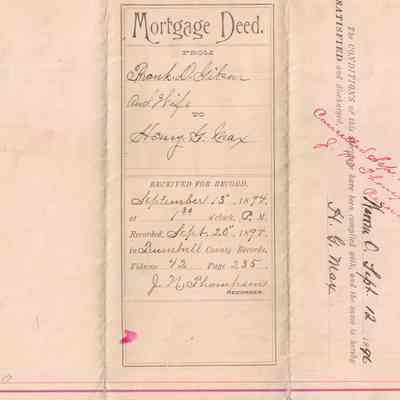 Mortgage Deed.
FROM
Frank D. Gibson
and Wife
TO
Henry G.
RECEIVED FOR RECORD,
September 15th 1894
at 1 00 o'clock, P. M.
Recorded, Sept 20th 1895
in Trumbull County Records,
Volume 42 Page 235
J. N. Thompson
RECORDER.
The CONDITIONS of this Mortgage have been complied with, and the same is hereby
SATISFIED and discharged.
Warren O. Sept. 12 1896
H. G. May